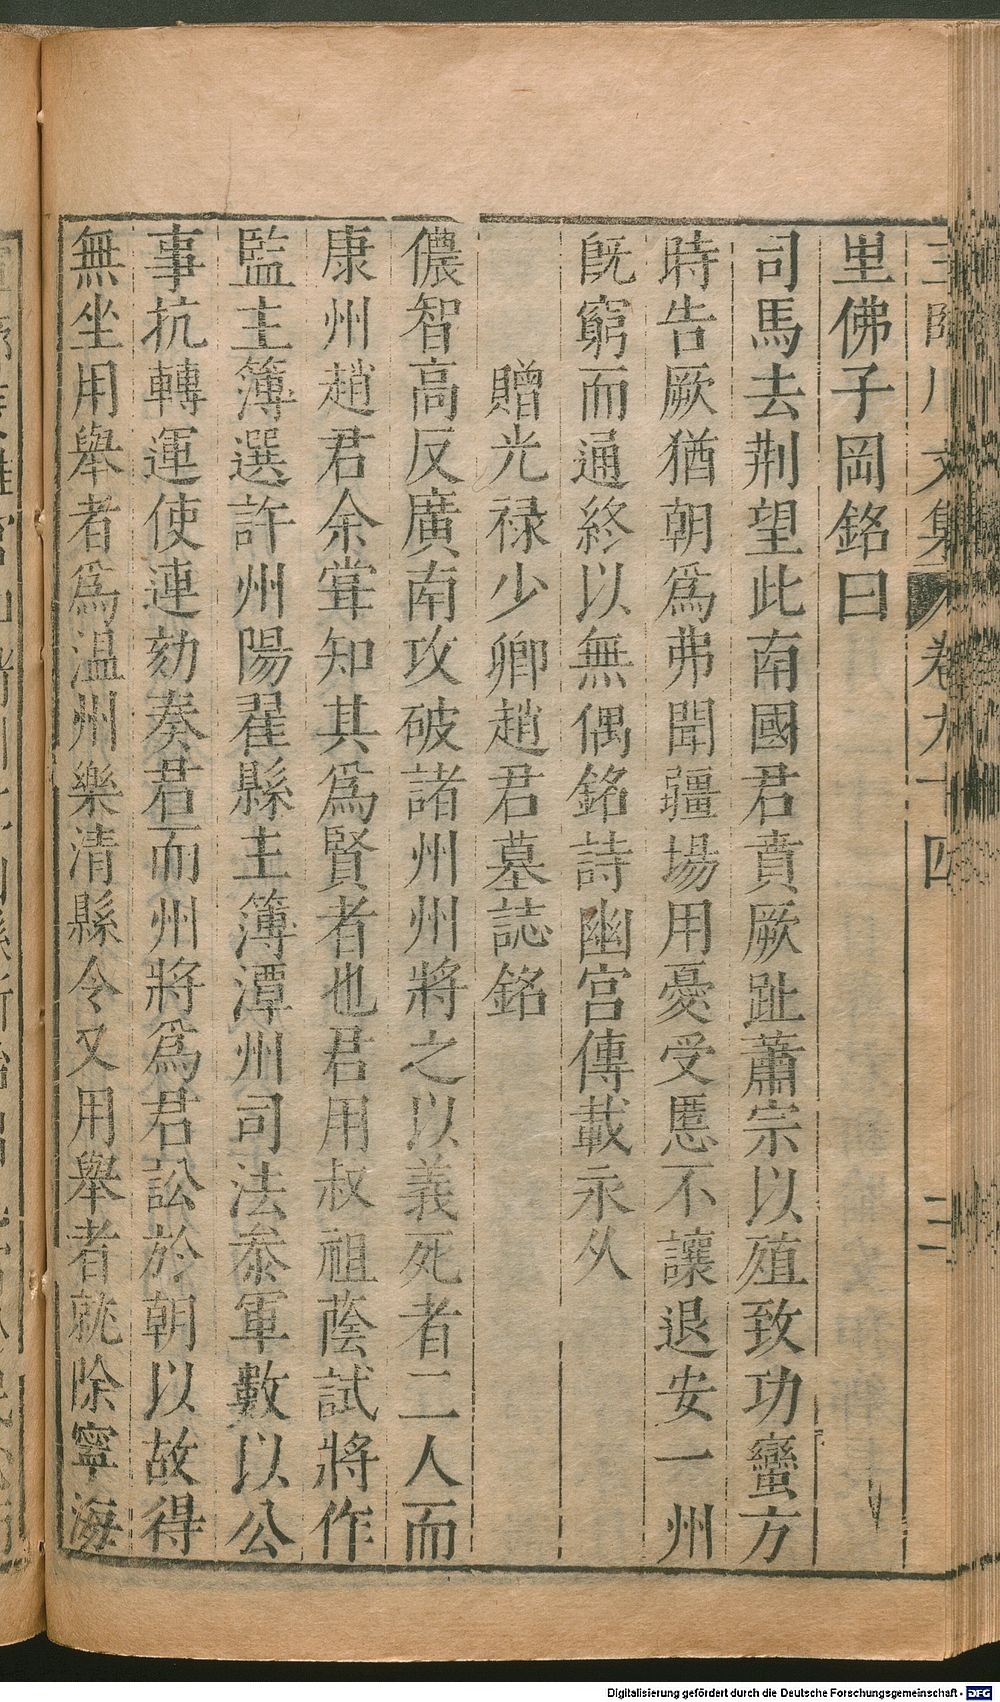 王臨川文集 卷九十四 二
里佛子岡銘曰
司馬去荆望此南國君賁厥趾蕭宗以殖致功蠻方
時告厥猶朝爲弗聞疆場用憂受慝不讓退安一州
旣窮而通終以無偶銘詩幽宫傳載永久
贈光禄少卿趙君墓誌銘
儂智高反廣南攻破諸州州將之以義死者二人而
康州趙君余甞知其爲賢者也君用叔祖蔭試將作
監主簿選許州陽翟縣主簿潭州司法叅軍數以公
事抗轉運使連劾奏君而州將爲君訟於朝以故得
無坐用舉者爲温州樂清縣令又用舉者就除寧海
Digitalisierung gefördert durch die Deutsche Forschungsgemeinschaft - DFG